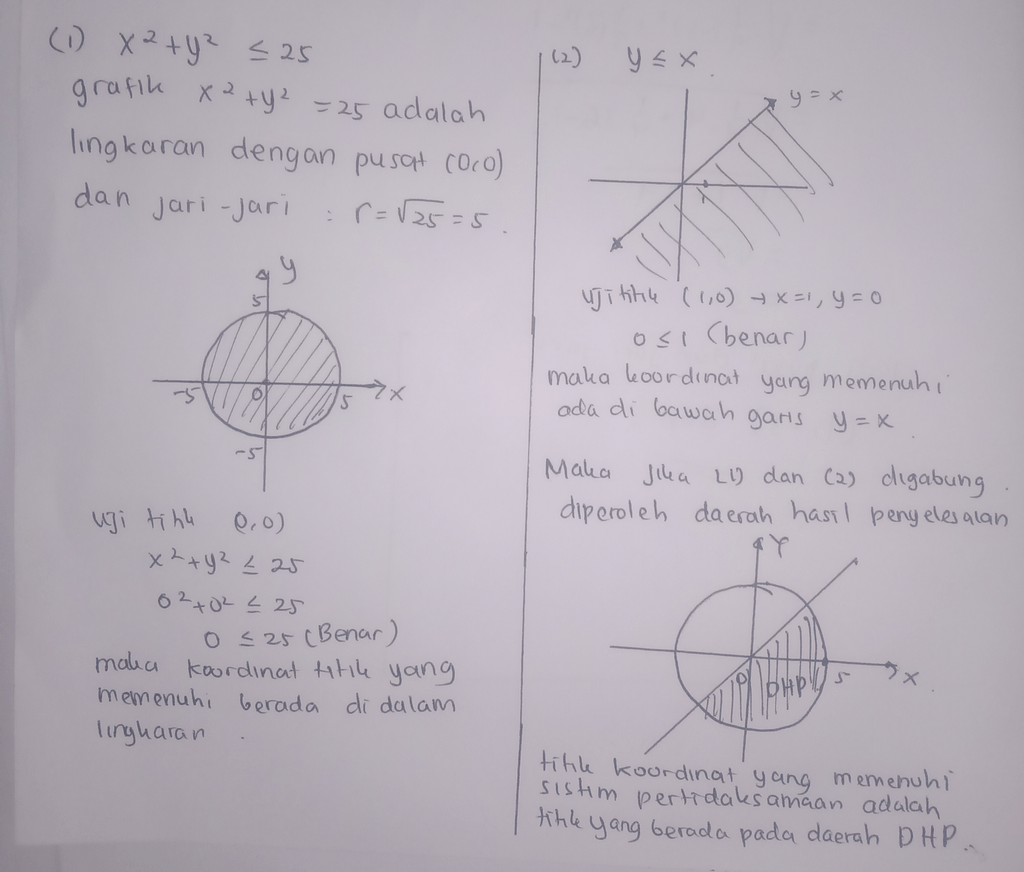 (1) x² + y² ≤ 25
grafik x² + y² = 25 adalah
lingkaran dengan pusat (0,0)
dan jari-jari : r = √25 = 5.
y
5
-5
0
5
x
-5
uji titik (0,0)
x² + y² ≤ 25
0² + 0² ≤ 25
0 ≤ 25 (Benar)
maka koordinat titik yang
memenuhi berada di dalam
lingkaran.
(2) y ≤ x.
y = x
1
uji titik (1,0) → x=1, y=0
0 ≤ 1 (benar)
maka koordinat yang memenuhi
ada di bawah garis y = x.
Maka jika (1) dan (2) digabung.
diperoleh daerah hasil penyelesaian
Y
0
DHP
5
x.
titik koordinat yang memenuhi
sistim pertidaksamaan adalah
titik yang berada pada daerah DHP..